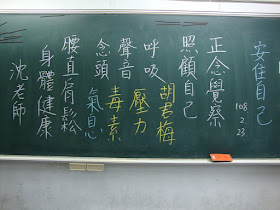 安住自己
108.2.23
正念覺察
照顧自己
胡君梅
呼吸
壓力
聲音
毒素
念頭
氣息
腰直肩鬆
身體健康
沈老師